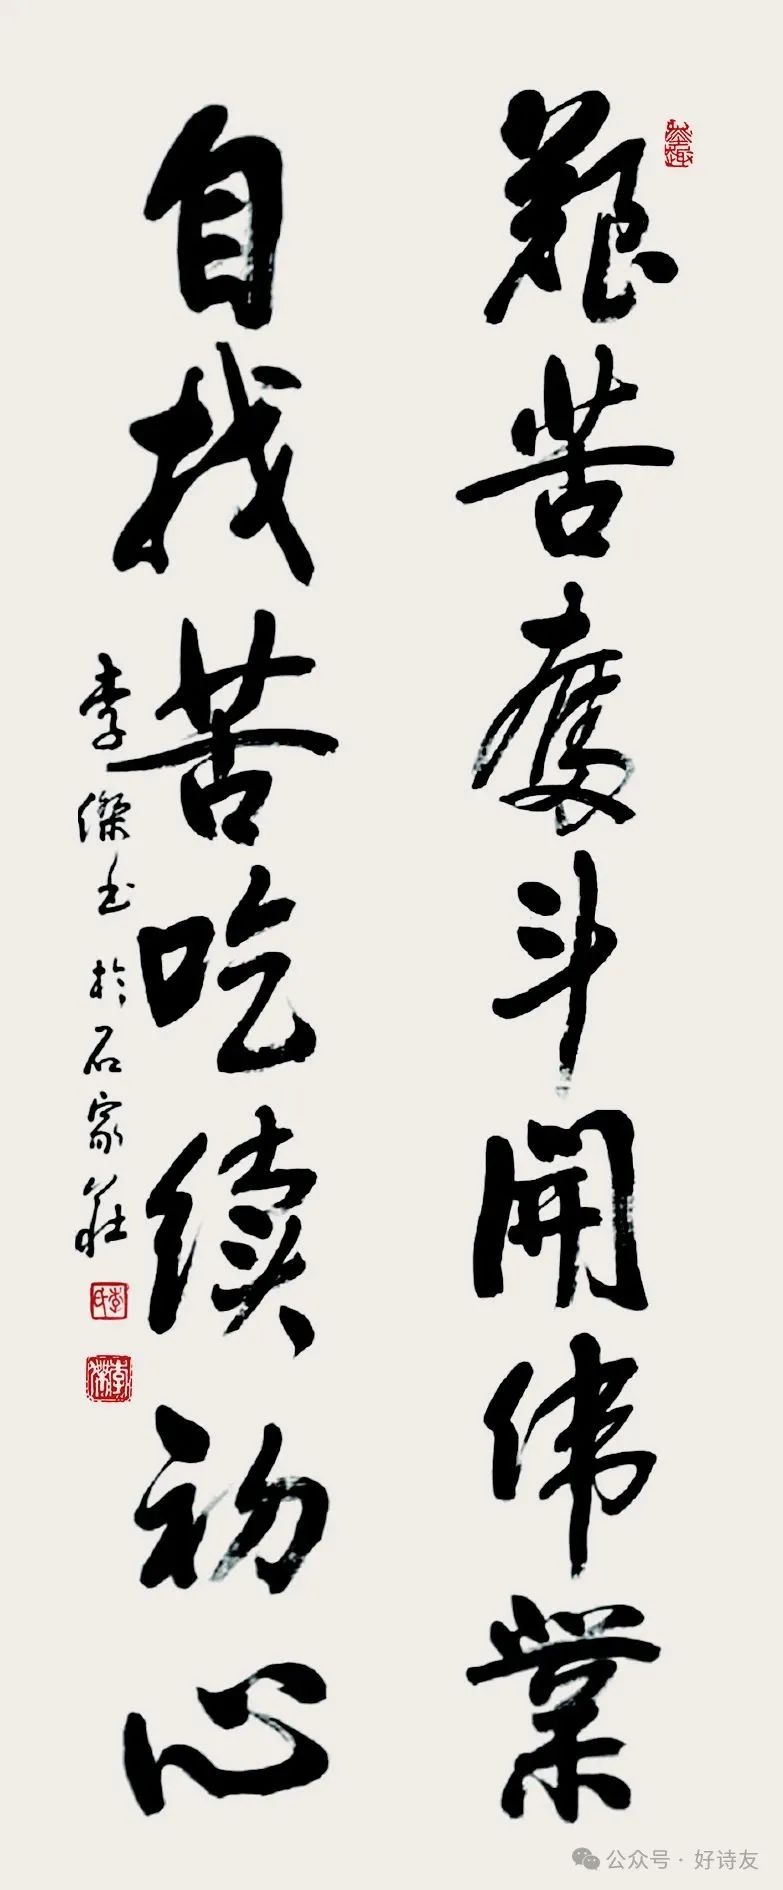 艱苦奮斗開偉業
自找苦吃续初心
李傑书於石家莊
李氏
李傑
公众号·好诗友